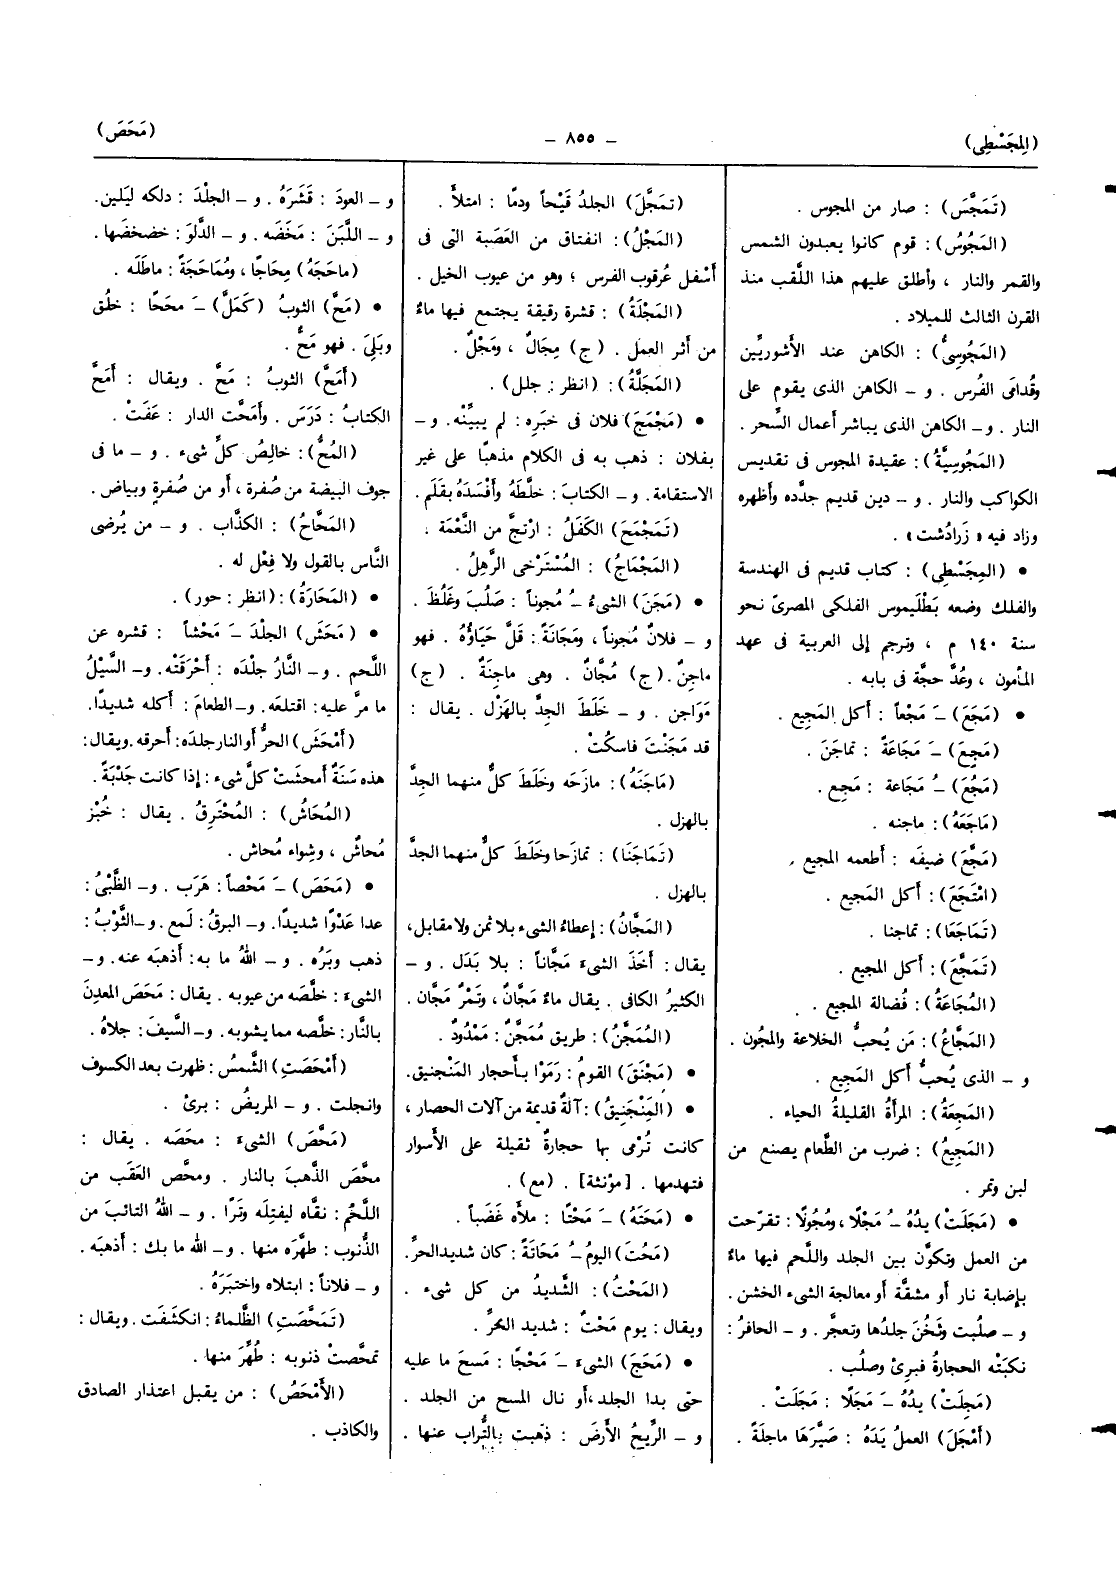 (المِجَسْطِى)
— ٨٥٥ —
(مَحَصَ)
(تَمَجَّسَ) : صار من المجوس .
(المَجُوسُ): قوم كانوا يعبدون الشمس
والقمر والنار ، وأطلق عليهم هذا اللَّقب منذ
القرن الثالث للميلاد .
(المَجُوسِىُّ) : الكاهن عند الأشوريِّين
وقُدامَى الفُرس . و – الكاهن الذى يقوم على
النار . و – الكاهن الذى يباشر أعمال السِّحر .
(المَجُوسِيَّةُ): عقيدة المجوس فى تقديس
الكواكب والنار . و – دين قديم جدَّده وأظهره
وزاد فيه « زَرادُشت » .
• (المِجَسْطِى) : كتاب قديم فى الهندسة
والفلك وضعه بَطْلَيموس الفلكى المصرىّ نحو
سنة ١٤٠ م ، وترجم إلى العربية فى عهد
المأمون ، وعُدَّ حجَّة فى بابه .
• (مَجَعَ) ـَ مَجْعاً : أكل المَجِيع .
(مَجِعَ) ـَ مَجَاعَةً : تماجَنَ .
(مَجُعَ) ـُ مَجَاعة : مَجِع .
(مَاجَعَهُ) : ماجنه .
(مَجَّعَ) ضيفَه : أطعمه المجيع .
(امْتَجَعَ) : أكل المَجيع .
(تَمَاجَعَا) : تماجنا .
(تَمَجَّعَ) : أكل المجيع .
(المُجَاعَةُ) : فُضالة المجيع .
(المَجَّاعُ) : مَن يُحبُّ الخلاعة والمُجُون .
و – الذى يُحبُّ أكل المَجِيع .
(المَجِعَةُ) : المرأة القليلةُ الحياء .
(المَجِيعُ) : ضرب من الطَّعام يصنع من
لبن وتمر .
• (مَجَلَتْ) يدُهُ ـُ مَجْلًا ، ومُجُولًا : تقرّحت
من العمل وتكوَّن بين الجلد واللَّحم فيها ماءٌ
بإضابة نار أو مشقَّة أو معالجة الشىء الخشن .
و – صلُبت وثَخُنَ جلدُها وتعجَّر . و – الحافرُ :
نكبَتْه الحجارةُ فبرِئ وصلُب .
(مَجِلَتْ) يدُهُ ـَ مَجَلًا : مَجَلَتْ .
(أَمْجَلَ) العملُ يَدَهُ : صَيَّرَهَا ماجلَةً .
(تمَجَّلَ) الجلدُ قَيْحاً ودمًا : امتلأَ .
(المَجْلُ) : انفتاق من العَصَبة التى فى
أَسْفل عُرقوب الفرس ؛ وهو من عيوب الخيل .
(المَجْلَةُ) : قشرة رقيقة يجتمع فيها ماءٌ
من أثر العمل . (ج) مِجَالٌ ، ومَجْلٌ .
(المَجَلَّةُ) : (انظر : جلل) .
• (مَجْمَجَ) فلان فى خبَرِه : لم يبيِّنْه . و –
بفلان : ذهب به فى الكلام مذهباً على غير
الاستقامة. و – الكتابَ : خلَّطَهُ وأَفْسَدَهُ بقَلَم .
(تَمَجْمَجَ) الكَفَلُ : ارْتجَّ من النَّعْمَة .
(المَجْمَاجُ) : المُسْتَرْخى الرَّهِلُ .
• (مَجَنَ) الشىءُ ـُ مُجوناً : صَلُبَ وغَلُظَ .
و – فلانٌ مُجوناً ، ومَجَانَةً : قَلَّ حَيَاؤُهُ . فهو
ماجِنٌ . (ج) مُجَّانٌ . وهى ماجِنَةٌ . (ج)
مَوَاجن . و – خلَطَ الجِدَّ بالهَزْل . يقال :
قد مَجَنْتَ فاسكُتْ .
(مَاجَنَهُ) : مازحَه وخَلَطَ كلٌّ منهما الجِدَّ
بالهزل .
(تَمَاجَنَا) : تمازَحا وخَلَطَ كلٌّ منهما الجدَّ
بالهزل .
(المَجَّانُ) : إعطاءُ الشىء بلا ثمن ولا مقابل،
يقال : أَخَذَ الشىءَ مَجَّاناً : بلا بَدَل . و –
الكثيرُ الكافى . يقال ماءٌ مَجَّانٌ ، وتَمْرٌ مَجَّان .
(المُمَجَّنُ) : طريق مُمَجَّنٌ : مَمْدُودٌ .
• (مَجْنَقَ) القومُ : رَمَوْا بأحجار المَنْجنيق .
• (المَنْجَنِيقُ) : آلةٌ قديمة من آلات الحصار ،
كانت تُرْمَى بها حجارةٌ ثقيلة على الأسوار
فتهدمها . [مؤنثة] . (مع) .
• (مَحَتَهُ) ـَ مَحْتًا : ملأَه غَضَباً .
(مَحُتَ) اليومُ ـُ مَحَاتَةً : كان شديدالحرِّ.
(المَحْتُ) : الشَّديدُ من كل شىء .
ويقال : يوم مَحْتٌ : شديد الحرِّ .
• (مَحَجَ) الشىءَ ـَ مَحْجًا : مَسحَ ما عليه
حتى بدا الجلد ،أو نال المسح من الجلد .
و – الرِّيحُ الأَرضَ : ذهبت بالتُّراب عنها .
و – العودَ : قَشَرَهُ . و – الجلْدَ : دلكه ليَلين.
و – اللَّبَنَ : مَخَضَه . و – الدَّلْوَ : خضخضَها.
(ماحَجَهُ) مِحَاجًا ، ومُمَاحَجَةً : ماطَلَه .
• (مَحَّ) الثوبُ (كَمَلَّ) ـَ محَحًا : خلُق
وبَلِىَ . فهو مَحٌّ .
(أَمَحَّ) الثوبُ : مَحَّ . ويقال : أَمَحَّ
الكتابُ : دَرَسَ . وأَمَحَّت الدار : عَفَتْ .
(المُحُّ) : خالِصُ كلِّ شىء . و – ما فى
جوف البيضة من صُفرة ، أو من صُفرةٍ وبياض.
(المَحَّاحُ) : الكذَّاب . و – من يُرضى
النَّاس بالقول ولا فِعْل له .
• (المَحَارَةُ) : (انظر : حور) .
• (مَحَشَ) الجلدَ ـَ مَحْشاً : قشره عن
اللَّحم . و – النَّارُ جلدَه : أَحْرَقَتْه. و – السَّيْلُ
ما مرَّ عليه : اقتلعَه. و – الطعامَ : أكله شديدًا.
(أَمْحَشَ) الحرُّ أو النار جلدَه: أحرقه .ويقال:
هذه سَنَةٌ أمحشَتْ كلَّ شىء : إذا كانت جَدْبَةً .
(المُحَاشُ) : المُحْتَرِقُ . يقال : خُبْز
مُحاشٌ ، وشِواء مُحاش .
• (مَحَصَ) ـَ مَحْصاً : هَرَب . و – الظَّبْىُ :
عدا عَدْوًا شديدًا. و – البرقُ : لَمع . و – الثَّوْبُ :
ذهب وبَرُه . و – اللهُ ما به : أَذهبَه عنه. و –
الشىءَ : خلَّصه من عيوبه . يقال : مَحَصَ المعدِنَ
بالنَّار: خلَّصه مما يشوبه. و – السَّيفَ: جلاهُ .
(أَمْحَصَتِ) الشَّمسُ : ظهرت بعد الكسوف
وانجلت . و – المريضُ : برئ .
(مَحَّصَ) الشىءَ : محَصَه . يقال :
محَّصَ الذَّهبَ بالنار . ومحَّص العَقَب من
اللَّحْم : نقَّاه ليفتِلَه وتَرًا . و – اللهُ التائبَ من
الذُّنوب : طهَّرَه منها . و – الله ما بك : أذهبَه .
و – فلاناً : ابتلاه واختبَرَهُ .
(تَمَحَّصَتِ) الظَّلماءُ : انكشَفَت .ويقال :
تمحَّصتْ ذنوبه : طُهِّرَ منها .
(الأَمْحَصُ) : من يقبل اعتذار الصادق
والكاذب .